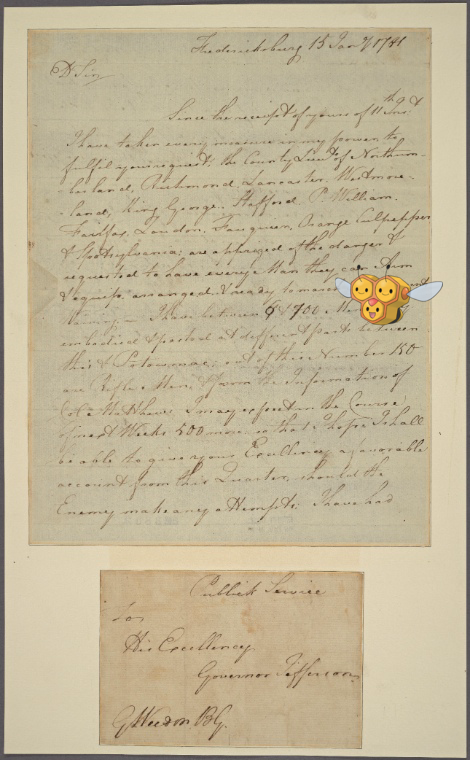 Fredericksburg 15 Jany 1781
Dr Sir
Since the receipt of yours of 11th &
I have taken every measure in my power to
fulfil your request. the County Lieuts of Northum-
berland, Richmond Lancaster, Westmore-
-land, King George, Stafford, P. William,
Fairfax, Loudon, Fauquier, Orange Culpepper
& Spotsylvania, are apprized of the danger &
requested to have every Man they can Arm
& equip, arranged & ready to march
I have between 6 & 700 Men
embodied & posted at different parts between
this & Potowmac; out of this Number 150
are Rifle Men, & from the Information of
I may expect in the Course
of next Week 500 more, so that I hope I shall
be able to give your Excellency a favorable
account from this Quarter, should the
Enemy make any attempts. I have had
Publick Service
For
His Excellency
Governor Jefferson
G Weedon B G.